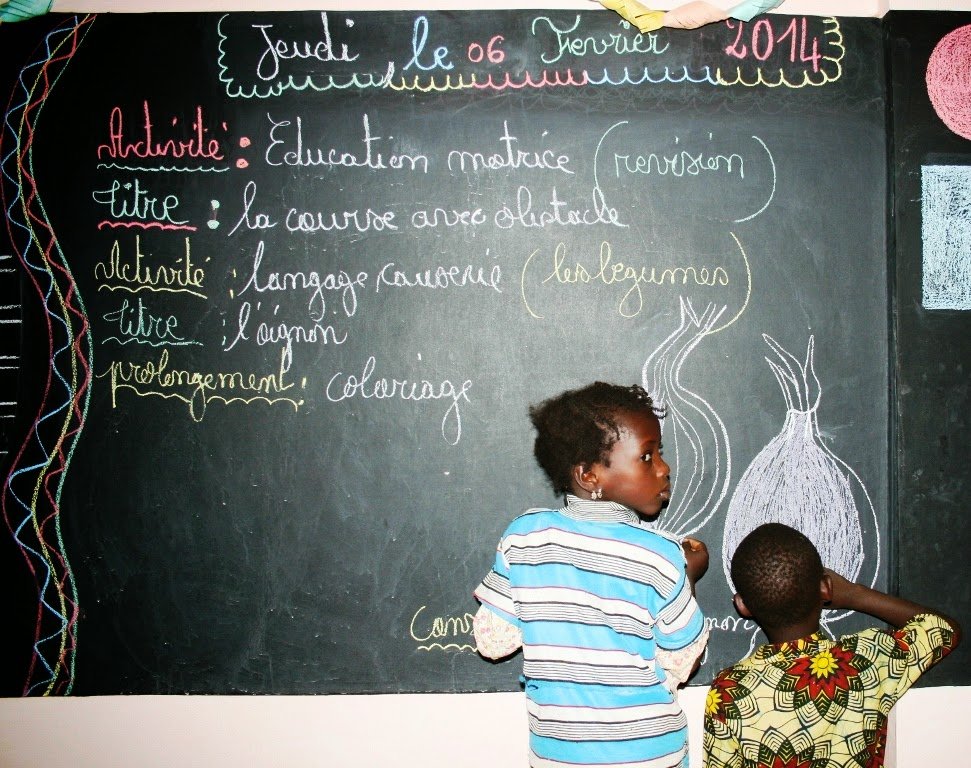 Jeudi le 06 Fevrier 2014
Activité : Education motrice (revision)
Titre : la course avec obstacle
Activité : langage, causerie (les legumes)
Titre : l'oignon
prolongement : coloriage